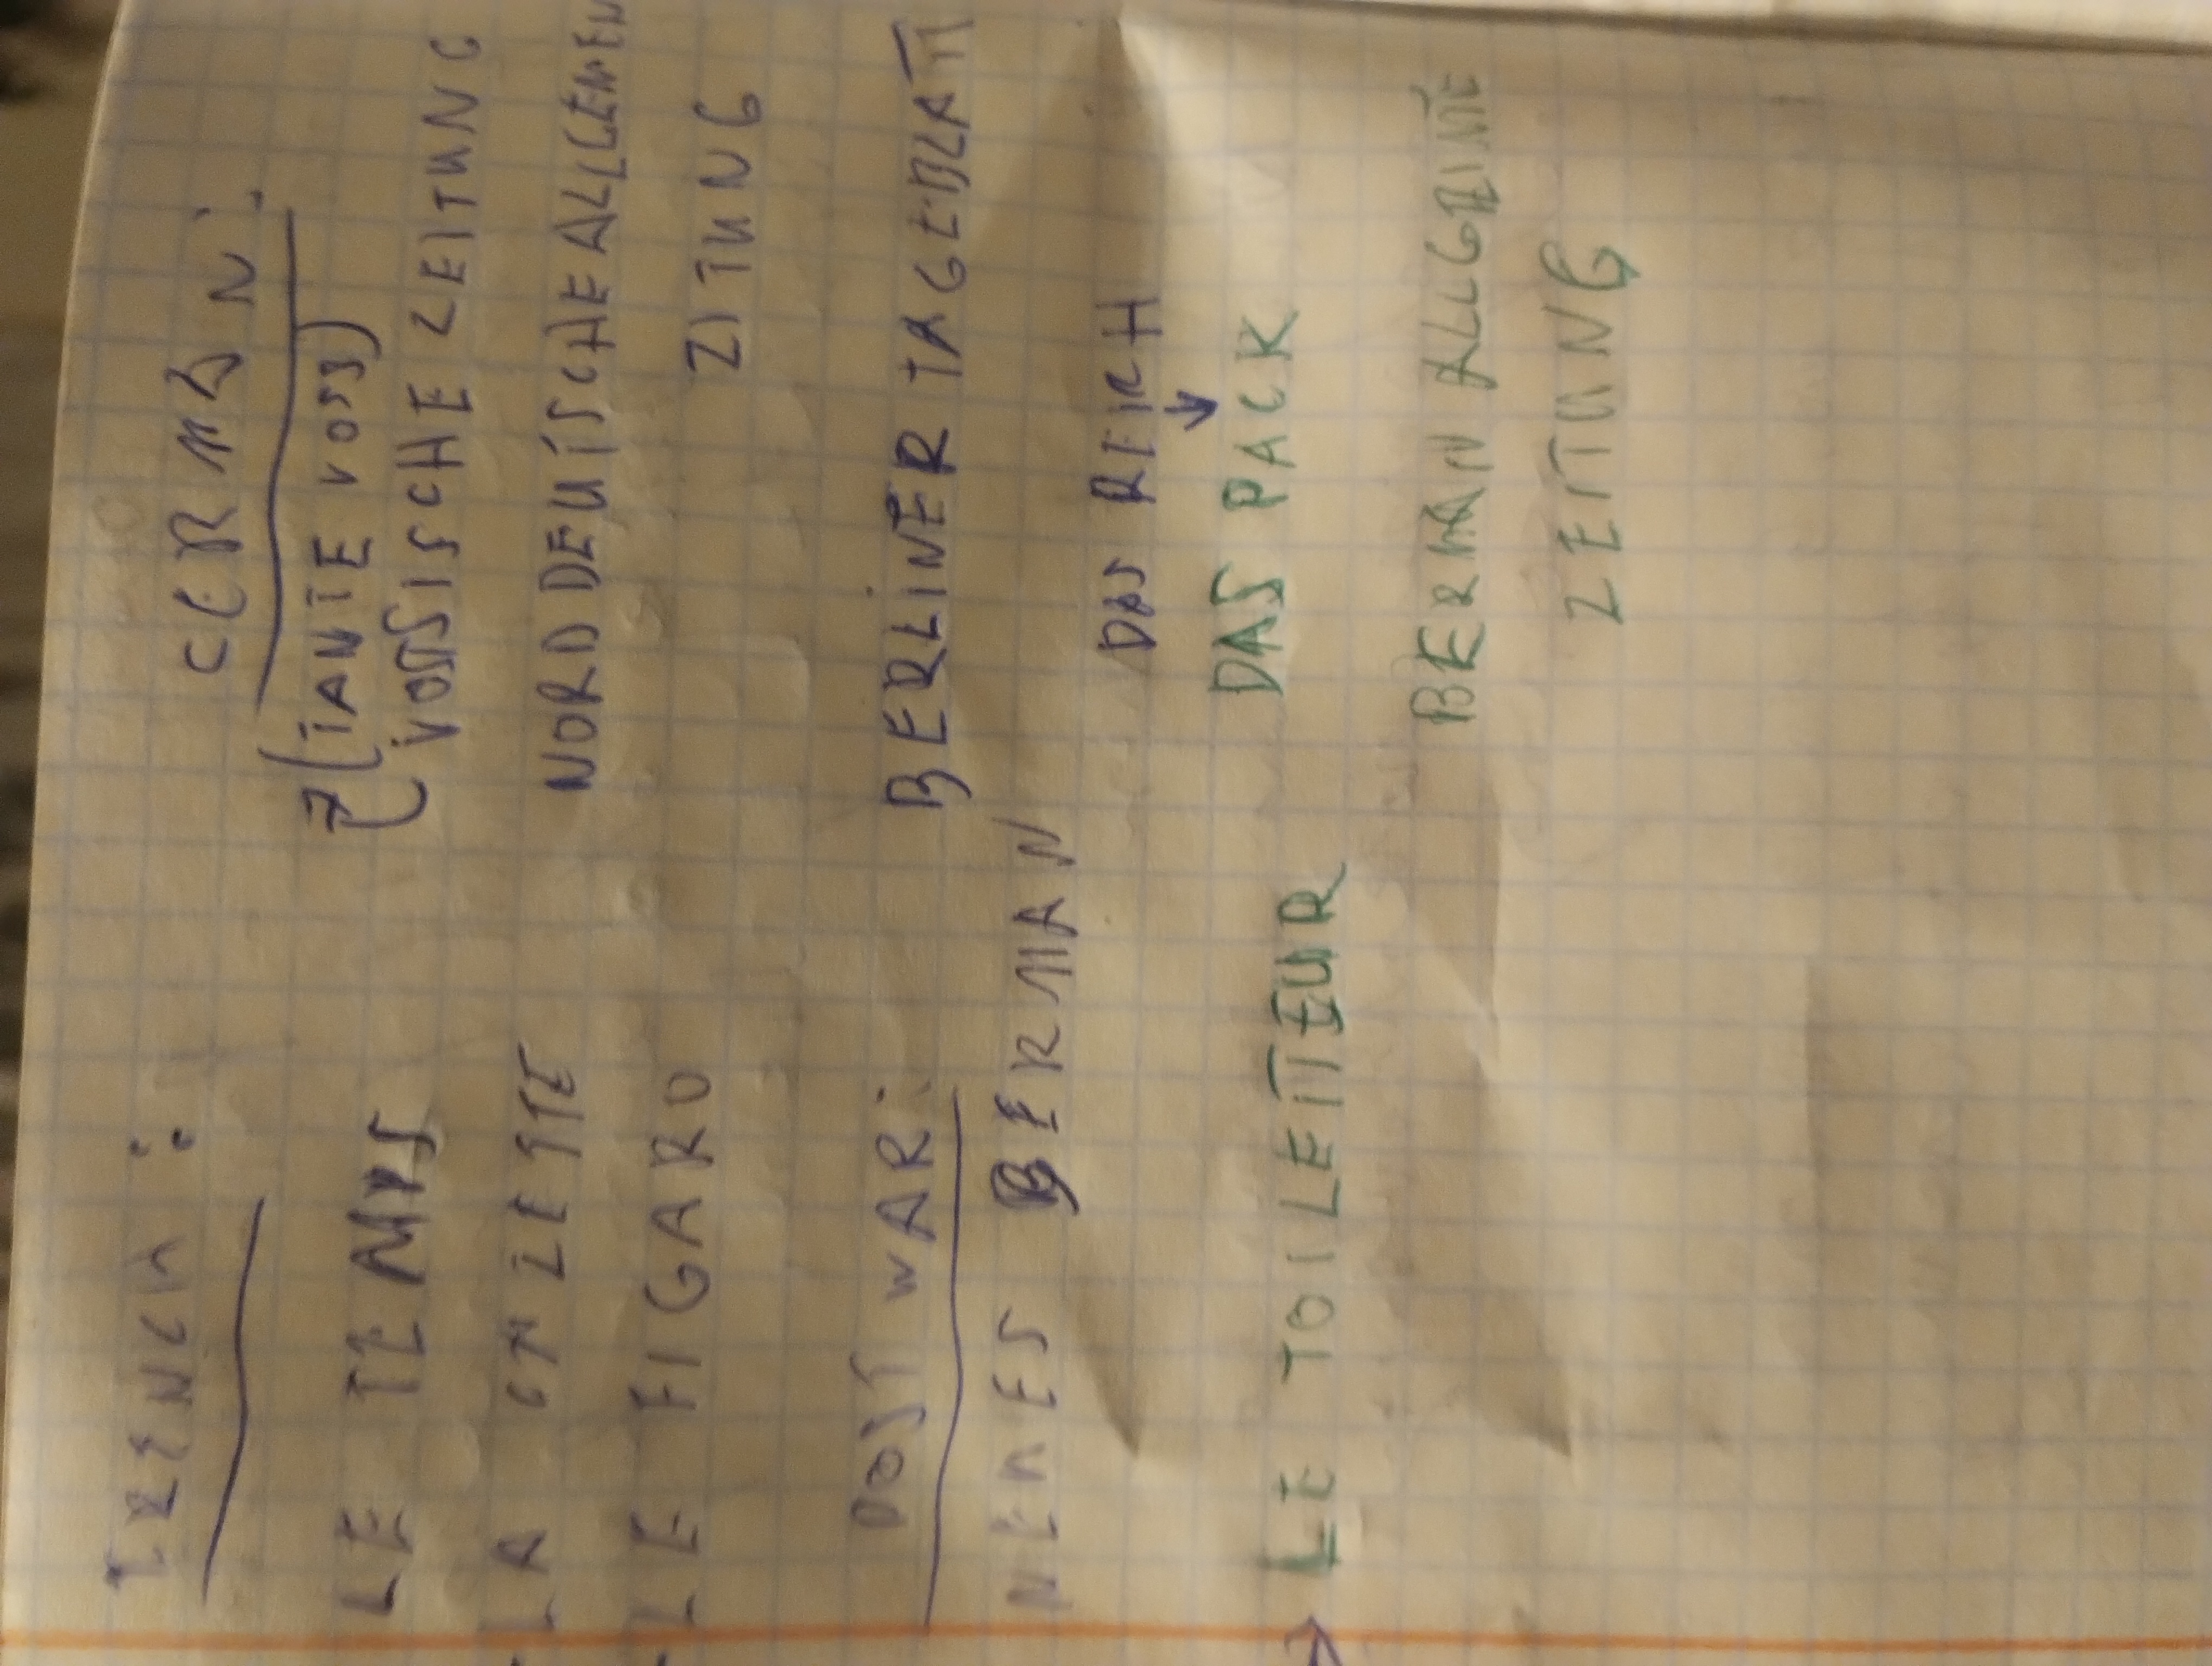 FRENCH:
LE TEMPS
LA GAZETTE
LE FIGARO
GERMAN:
(TANTE VOSS)
VOSSISCHE ZEITUNG
NORDDEUTSCHE ALLGEMEIN
ZITUNG
BERLINER TAGEBLATT
POST WAR:
NEUES BERMAN
DAS REICH
↓
DAS PACK
→ LE TOILETTEUR
BERMAN ALLGEMEINTE
ZEITUNG